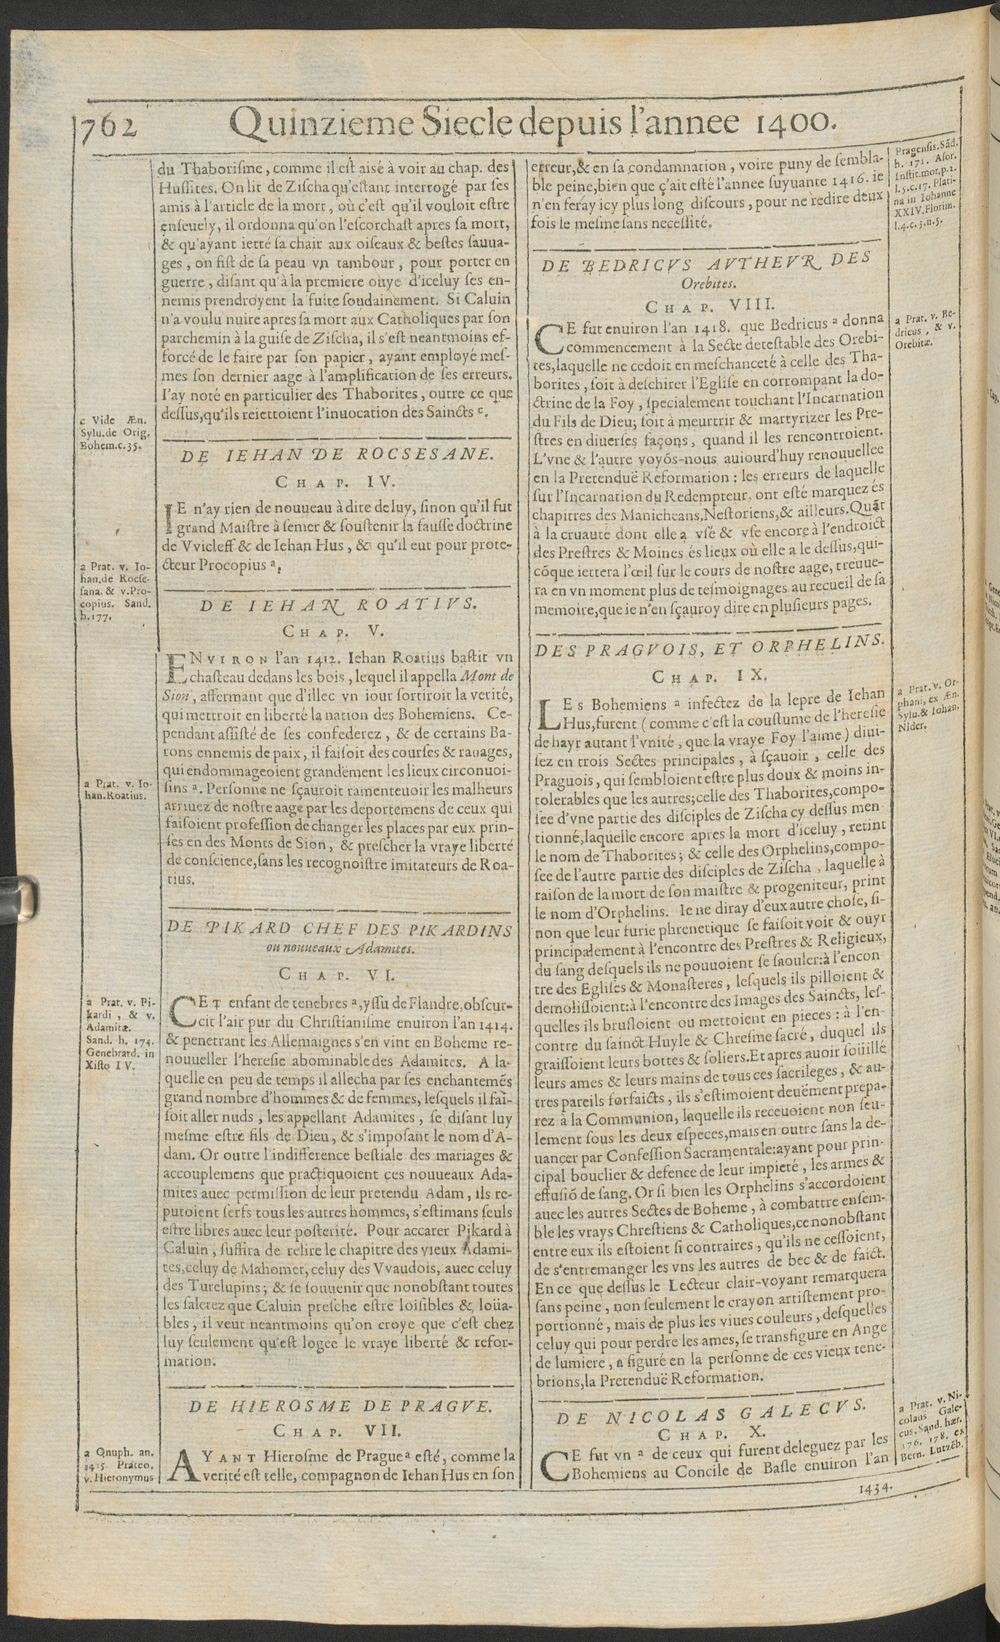 762 Quinzieme Siecle depuis l'annee 1400.
du Thaborisme, comme il eſt aisé à voir au chap. des
Huſſites. On lit de Ziſcha qu'eſtant interrogé par ſes
amis à l'article de la mort, où c'eſt qu'il vouloit eſtre
enſeuely, il ordonna qu'on l'eſcorchaſt apres ſa mort,
& qu'ayant ietté ſa chair aux oiſeaux & beſtes ſauua-
ges, on fiſt de ſa peau vn tambour, pour porter en
guerre, diſant qu'à la premiere ouye d'iceluy ſes en-
nemis prendroyent la fuite ſoudainement. Si Caluin
n'a voulu nuire apres ſa mort aux Catholiques par ſon
parchemin à la guiſe de Ziſcha, il s'eſt neantmoins ef-
forcé de le faire par ſon papier, ayant employé meſ-
mes ſon dernier aage à l'amplification de ſes erreurs.
I'ay noté en particulier des Thaborites, outre ce que
deſſus, qu'ils reiettoient l'inuocation des Saincts c.
c Vide Æn.
Sylu.de Orig.
Bohem.c.35.
DE IEHAN DE ROCSESANE.
CHAP. IV.
IE n'ay rien de nouueau à dire de luy, ſinon qu'il fut
grand Maiſtre à ſemer & ſouſtenir la fauſſe doctrine
de Vvicleff & de Iehan Hus, & qu'il eut pour prote-
cteur Procopius a.
a Prat. v. Io-
han.de Rocſe-
ſana. & v.Pro-
copius. Sand.
h.177.
DE IEHAN ROATIVS.
CHAP. V.
ENVIRON l'an 1412. Iehan Roatius baſtit vn
chaſteau dedans les bois, lequel il appella Mont de
Sion, affermant que d'illec vn iour ſortiroit la verité,
qui mettroit en liberté la nation des Bohemiens. Ce-
pendant aſſiſté de ſes confederez, & de certains Ba-
rons ennemis de paix, il faiſoit des courſes & rauages,
qui endommageoient grandement les lieux circonuoi-
ſins a. Perſonne ne ſçauroit ramenteuoir les malheurs
arriuez de noſtre aage par les deportemens de ceux qui
faiſoient profeſſion de changer les places par eux prin-
ſes en des Monts de Sion, & preſcher la vraye liberté
de conſcience, ſans les recognoiſtre imitateurs de Roa-
tius.
a Prat. v. Io-
han.Roatius.
DE PIKARD CHEF DES PIKARDINS
ou nouueaux Adamites.
CHAP. VI.
CET enfant de tenebres a, yſſu de Flandre, obſcur-
cit l'air pur du Chriſtianiſme enuiron l'an 1414.
& penetrant les Allemaignes s'en vint en Boheme re-
nouueller l'hereſie abominable des Adamites. A la-
quelle en peu de temps il allecha par ſes enchantemẽs
grand nombre d'hommes & de femmes, leſquels il fai-
ſoit aller nuds, les appellant Adamites, ſe diſant luy
meſme eſtre fils de Dieu, & s'impoſant le nom d'A-
dam. Or outre l'indifference beſtiale des mariages &
accouplemens que practiquoient ces nouueaux Ada-
mites auec permiſſion de leur pretendu Adam, ils re-
putoient ſerfs tous les autres hommes, s'eſtimans ſeuls
eſtre libres auec leur poſterité. Pour accarer Pikard à
Caluin, ſuffira de relire le chapitre des vieux Adami-
tes, celuy de Mahomet, celuy des Vvaudois, auec celuy
des Turelupins; & ſe ſouuenir que nonobſtant toutes
les ſaletez que Caluin preſche eſtre loiſibles & loüa-
bles, il veut neantmoins qu'on croye que c'eſt chez
luy ſeulement qu'eſt logee le vraye liberté & refor-
mation.
a Prat. v. Pi-
kardi, & v.
Adamitæ.
Sand. h. 174.
Genebrard. in
Xiſto IV.
DE HIEROSME DE PRAGVE.
CHAP. VII.
AYANT Hieroſme de Prague a eſté, comme la
verité eſt telle, compagnon de Iehan Hus en ſon
a Onuph. an.
1415. Prateo.
v.Hieronymus
erreur, & en ſa condamnation, voire puny de ſembla-
ble peine, bien que ç'ait eſté l'annee ſuyuante 1416. ie
n'en feray icy plus long diſcours, pour ne redire deux
fois le meſme ſans neceſſité.
Pragenſis.Sãd.
h. 171. Aſor.
Inſtit.mor.p.1.
l.5.c.17. Plati-
na in Iohanne
XXIV.Florim.
l.4.c.3.n.5.
DE BEDRICVS AVTHEVR DES
Orebites.
CHAP. VIII.
CE fut enuiron l'an 1418. que Bedricus a donna
commencement à la Secte deteſtable des Orebi-
tes, laquelle ne cedoit en meſchanceté à celle des Tha-
borites, ſoit à deſchirer l'Egliſe en corrompant la do-
ctrine de la Foy, ſpecialement touchant l'Incarnation
du Fils de Dieu; ſoit à meurtrir & martyrizer les Pre-
ſtres en diuerſes façons, quand il les rencontroient.
L'vne & l'autre voyõs-nous auiourd'huy renouuellee
en la Pretenduë Reformation: les erreurs de laquelle
ſur l'Incarnation du Redempteur, ont eſté marquez és
chapitres des Manicheans, Neſtoriens, & ailleurs. Quãt
à la cruauté dont elle a vſé & vſe encore à l'endroict
des Preſtres & Moines és lieux où elle a le deſſus, qui-
cõque iettera l'œil ſur le cours de noſtre aage, treuue-
ra en vn moment plus de teſmoignages au recueil de ſa
memoire, que ie n'en ſçauroy dire en pluſieurs pages.
a Prat. v. Be-
dricus, & v.
Orebitæ.
DES PRAGVOIS, ET ORPHELINS.
CHAP. IX.
LES Bohemiens a infectez de la lepre de Iehan
Hus, furent (comme c'eſt la couſtume de l'hereſie
de hayr autant l'vnité, que la vraye Foy l'aime) diui-
ſez en trois Sectes principales, à ſçauoir, celle des
Praguois, qui ſembloient eſtre plus doux & moins in-
tolerables que les autres; celle des Thaborites, compo-
ſee d'vne partie des diſciples de Ziſcha cy deſſus men
tionné, laquelle encore apres la mort d'iceluy, retint
le nom de Thaborites; & celle des Orphelins, compo-
ſee de l'autre partie des diſciples de Ziſcha, laquelle à
raiſon de la mort de ſon maiſtre & progeniteur, print
le nom d'Orphelins. Ie ne diray d'eux autre choſe, ſi-
non que leur furie phrenetique ſe faiſoit voir & ouyr
principalement à l'encontre des Preſtres & Religieux,
du ſang deſquels ils ne pouuoient ſe ſaouler: à l'encon
tre des Egliſes & Monaſteres, leſquels ils pilloient &
demoliſſoient: à l'encontre des Images des Saincts, leſ-
quelles ils bruſloient ou mettoient en pieces: à l'en-
contre du ſainct Huyle & Chreſme ſacré, duquel ils
graiſſoient leurs bottes & ſoliers. Et apres auoir ſoüillé
leurs ames & leurs mains de tous ces ſacrileges, & au-
tres pareils forfaicts, ils s'eſtimoient deuëment prepa-
rez à la Communion, laquelle ils receuoient non ſeu-
lement ſous les deux eſpeces, mais en outre ſans la de-
uancer par Confeſſion Sacramentale: ayant pour prin-
cipal bouclier & defence de leur impieté, les armes &
effuſiõ de ſang. Or ſi bien les Orphelins s'accordoient
auec les autres Sectes de Boheme, à combattre enſem-
ble les vrays Chreſtiens & Catholiques, ce nonobſtant
entre eux ils eſtoient ſi contraires, qu'ils ne ceſſoient,
de s'entremanger les vns les autres de bec & de faict.
En ce que deſſus le Lecteur clair-voyant remarquera
ſans peine, non ſeulement le crayon artiſtement pro-
portionné, mais de plus les viues couleurs, deſquelles
celuy qui pour perdre les ames, ſe transfigure en Ange
de lumiere, a figuré en la perſonne de ces vieux tene-
brions, la Pretenduë Reformation.
a Prat. v. Or-
phani, ex Æn.
Sylu.& Iohan.
Nider.
DE NICOLAS GALECVS.
CHAP. X.
CE fut vn a de ceux qui furent deleguez par les
Bohemiens au Concile de Baſle enuiron l'an
a Prat. v. Ni-
colaus Gale-
cus. Sand. hær.
176. 178. ex
Bern. Lutzẽb.
1434.